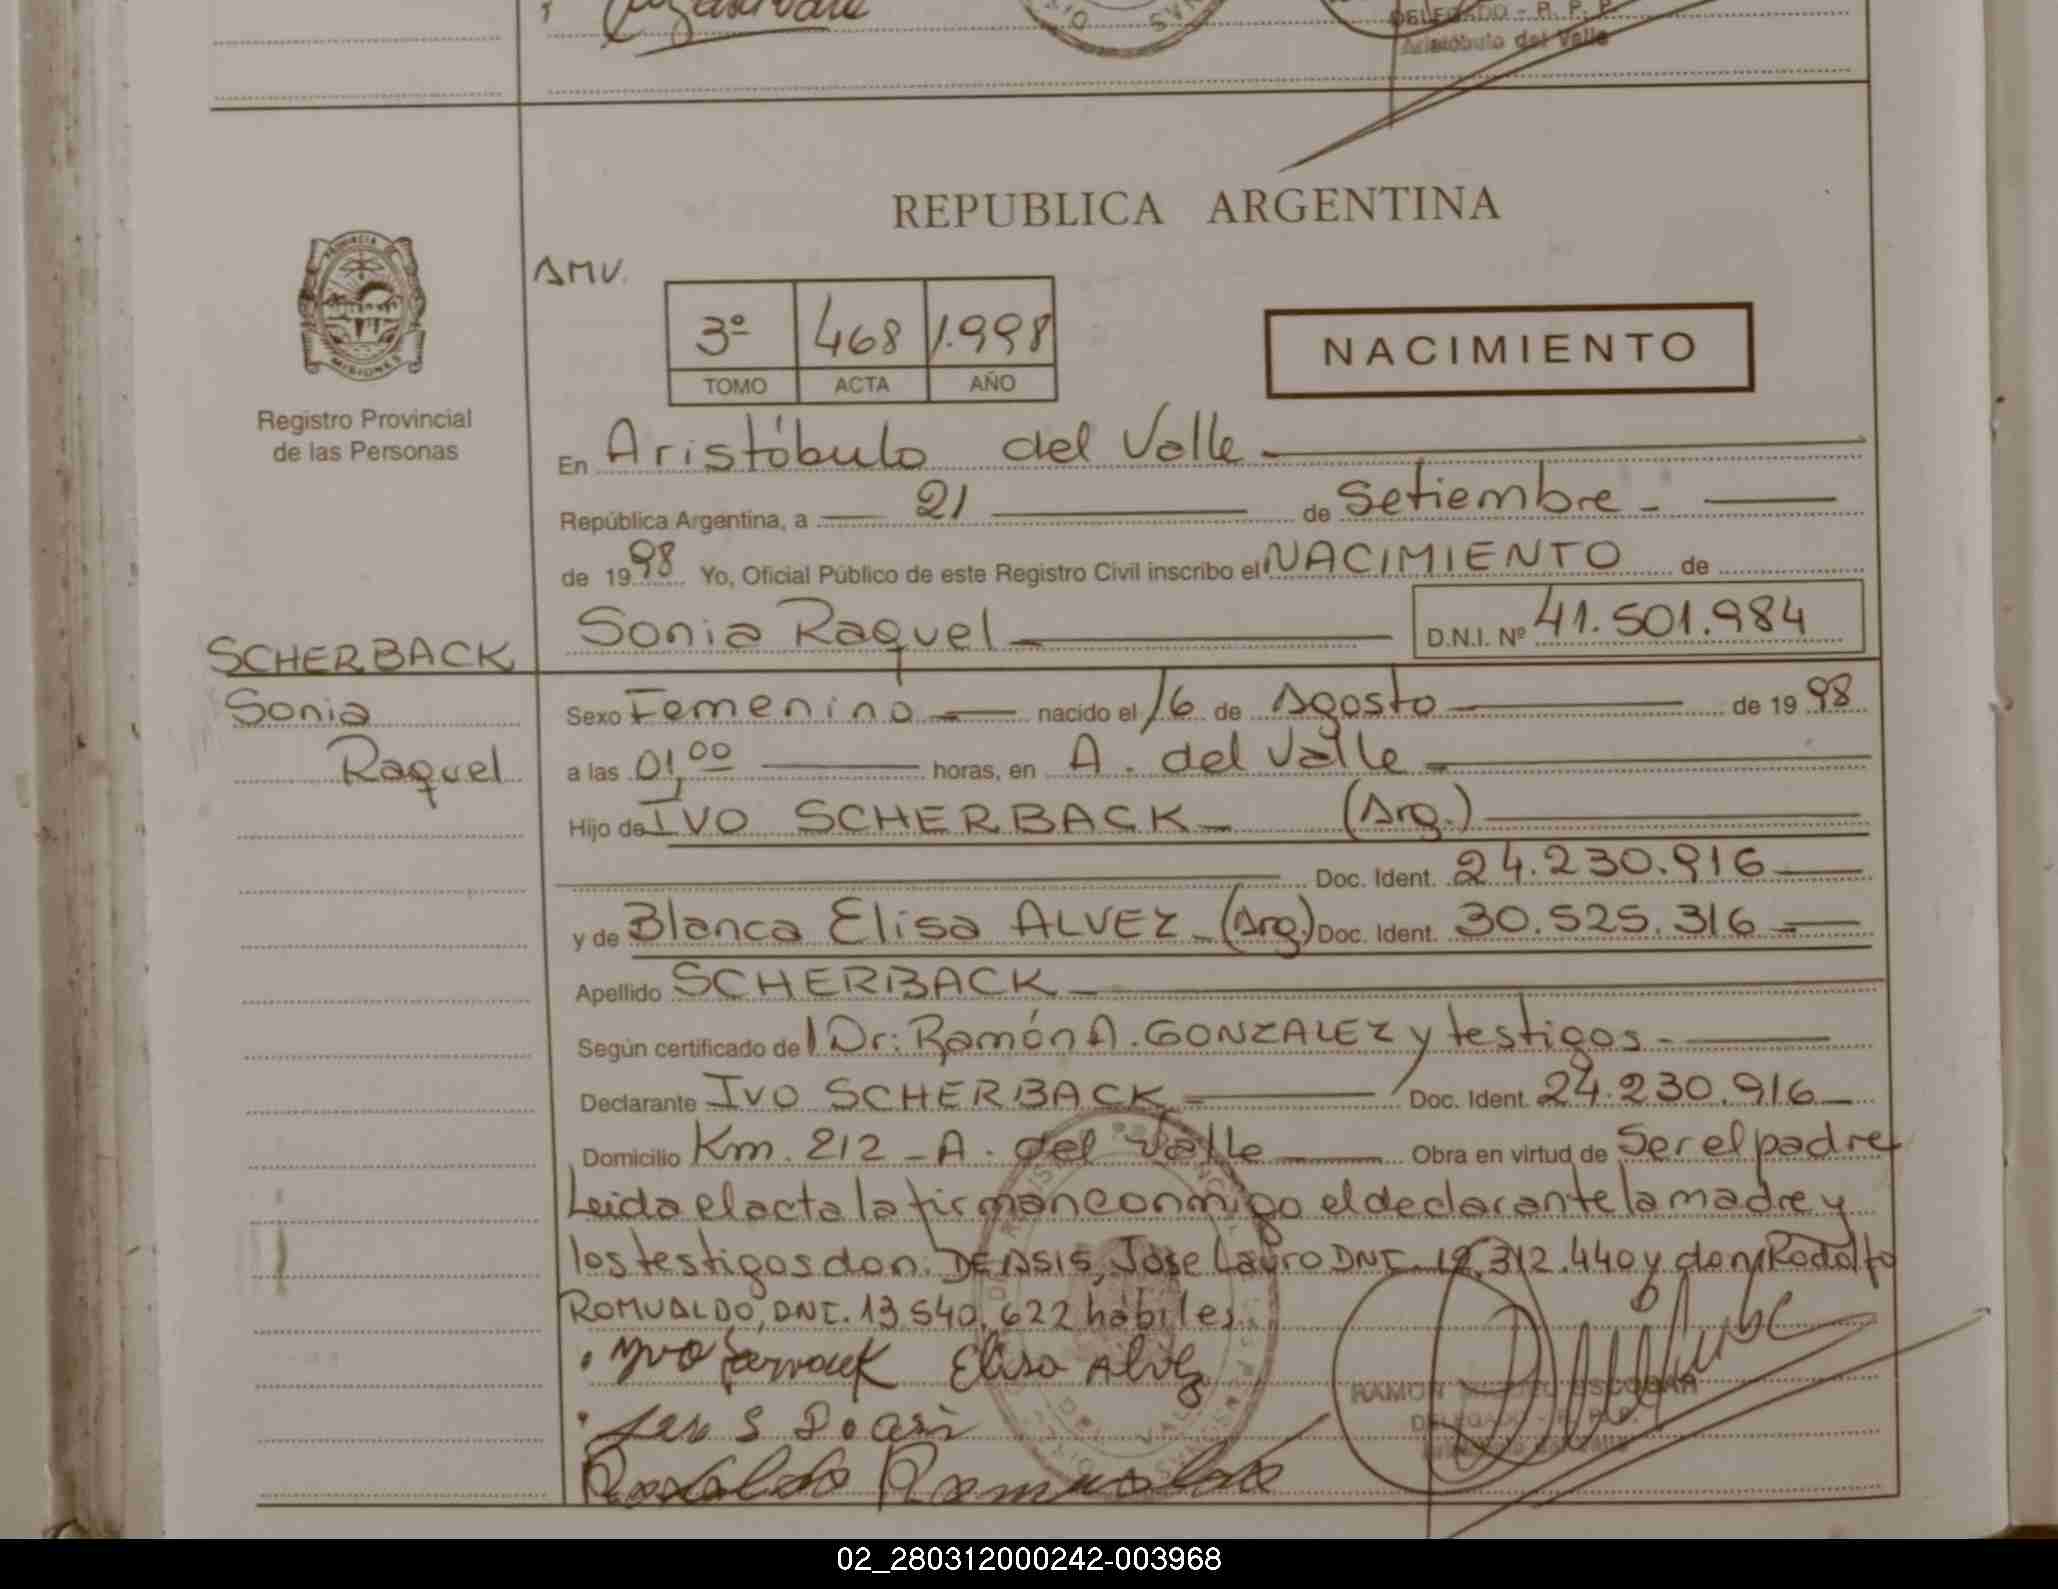 DELEGADO - R. P. P.
Aristóbulo del Valle
REPUBLICA ARGENTINA
PROVINCIA
MISIONES
AMV.
3º 468 1.998
TOMO ACTA AÑO
NACIMIENTO
Registro Provincial
de las Personas
En Aristóbulo del Valle
República Argentina, a 21 de Setiembre
de 1998 Yo, Oficial Público de este Registro Civil inscribo el NACIMIENTO de
Sonia Raquel D.N.I. Nº 41.501.984
SCHERBACK
Sonia
Raquel
Sexo Femenino nacido el 16 de Agosto de 1998
a las 01,00 horas, en A. del Valle
Hijo de IVO SCHERBACK (Arg.)
Doc. Ident. 24.230.916
y de Blanca Elisa ALVEZ (Arg.) Doc. Ident. 30.525.316
Apellido SCHERBACK
Según certificado del Dr: Ramón A. GONZALEZ y testigos
Declarante IVO SCHERBACK Doc. Ident. 24.230.916
Domicilio Km. 212 - A. del Valle Obra en virtud de Ser el padre
Leida el acta la firman conmigo el declarante la madre y
los testigos don: DE ASIS, Jose Lauro DNI. 12.312.440 y don Rodolfo
ROMUALDO, DNI. 13.540.622 hábiles
Elisa Alvez
RAMON ESCOBAR
DELEGADO - R. P. P.
Aristóbulo del Valle
02_280312000242-003968